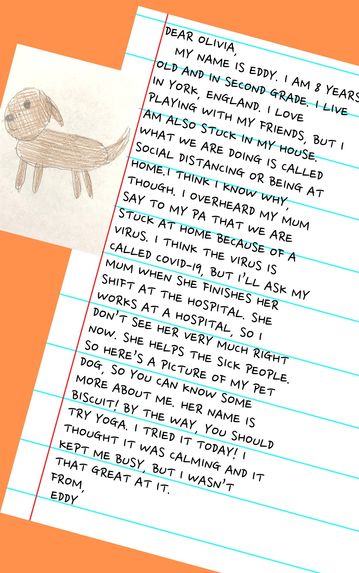 DEAR OLIVIA,
MY NAME IS EDDY. I AM 8 YEARS
OLD AND IN SECOND GRADE. I LIVE
IN YORK, ENGLAND. I LOVE
PLAYING WITH MY FRIENDS, BUT I
AM ALSO STUCK IN MY HOUSE.
WHAT WE ARE DOING IS CALLED
SOCIAL DISTANCING OR BEING AT
HOME.I THINK I KNOW WHY,
THOUGH. I OVERHEARD MY MUM
SAY TO MY PA THAT WE ARE
STUCK AT HOME BECAUSE OF A
VIRUS. I THINK THE VIRUS IS
CALLED COVID-19, BUT I'LL ASK MY
MUM WHEN SHE FINISHES HER
SHIFT AT THE HOSPITAL. SHE
WORKS AT A HOSPITAL, SO I
DON'T SEE HER VERY MUCH RIGHT
NOW. SHE HELPS THE SICK PEOPLE.
SO HERE'S A PICTURE OF MY PET
DOG, SO YOU CAN KNOW SOME
MORE ABOUT ME. HER NAME IS
BISCUIT! BY THE WAY, YOU SHOULD
TRY YOGA. I TRIED IT TODAY! I
THOUGHT IT WAS CALMING AND IT
KEPT ME BUSY, BUT I WASN'T
THAT GREAT AT IT.
FROM,
EDDY